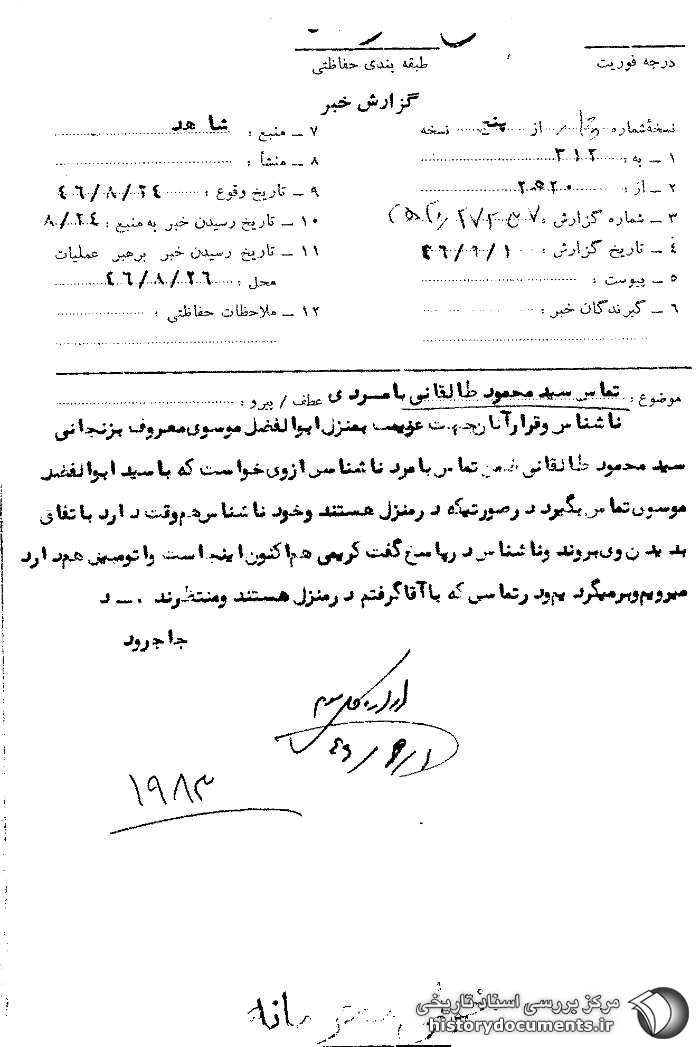 درجه فوریت
طبقه بندی حفاظتی
گزارش خبر
نسخهٔ شماره از پنج نسخه
۱ ـ به : ۳۱۲
۲ ـ از :
۳ ـ شماره گزارش :
۴ ـ تاریخ گزارش : ۴۶/۹/۱
۵ ـ پیوست :
۶ ـ گیرندگان خبر :
۷ ـ منبع : شاهد
۸ ـ منشأ :
۹ ـ تاریخ وقوع : ۴۶/۸/۲۴
۱۰ ـ تاریخ رسیدن خبر به منبع : ۸/۲۴
۱۱ ـ تاریخ رسیدن خبر برهبر عملیات
محل : ۴۶/۸/۲۶
۱۲ ـ ملاحظات حفاظتی :
موضوع : تماس سید محمود طالقانی با مردی عطف / پیرو :
ناشناس وقرار آنان جهت عزیمت بمنزل ابوالفضل موسوی معروف بزنجانی
سید محمود طالقانی ضمن تماس با مرد ناشناس ازوی خواست که با سید ابوالفضل
موسوی تماس بگیرد درصورتیکه درمنزل هستند وخود ناشناس هم وقت دارد باتفاق
بدیدن وی بروند وناشناس درپاسخ گفت کریمی هم اکنون اینجا است واتومبیل هم دارد
میرویم وبرمیگردیم ودرتماسی که با آقا گرفتم درمنزل هستند ومنتظرند . ـ د
جاجرود
اداره کل سوم
۴۶/۹/۱
۱۹۸۳
مرکز بررسی اسناد تاریخی
historydocuments.ir